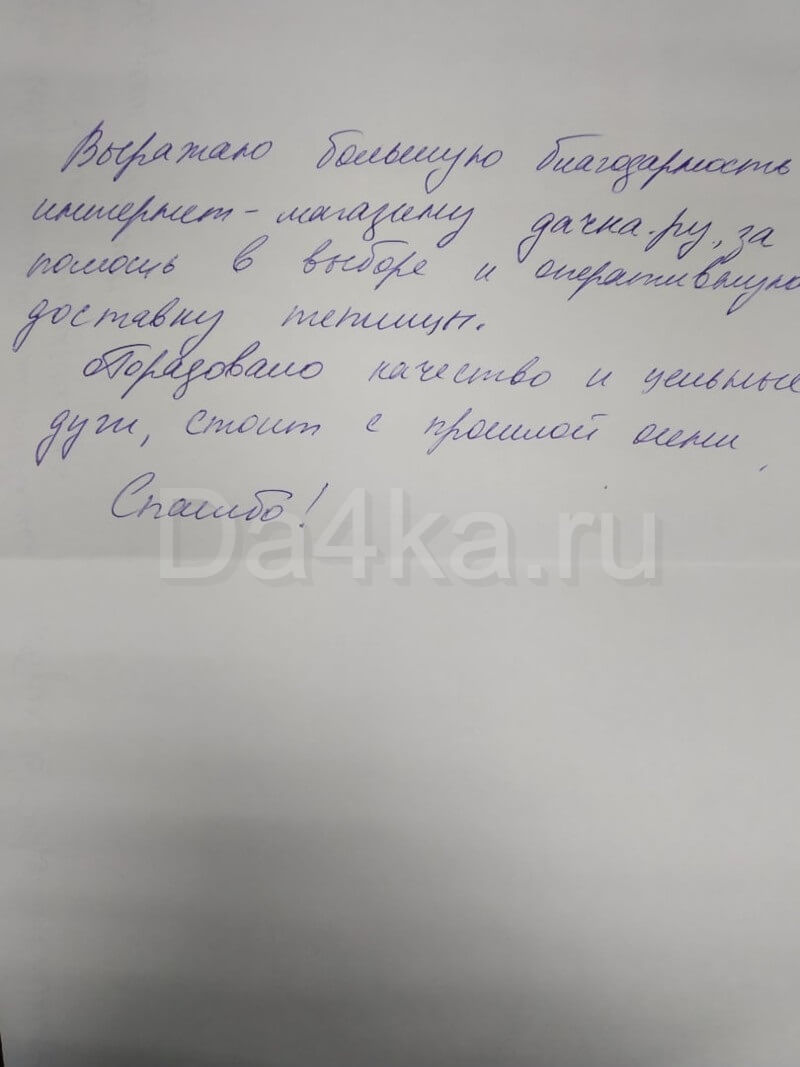 Выражаю большую благодарность
интернет-магазину дачка.ру, за
помощь в выборе и оперативную
доставку теплицы.
Порадовало качество и цельные
дуги, стоит с прошлой осени,
Спасибо!
Da4ka.ru